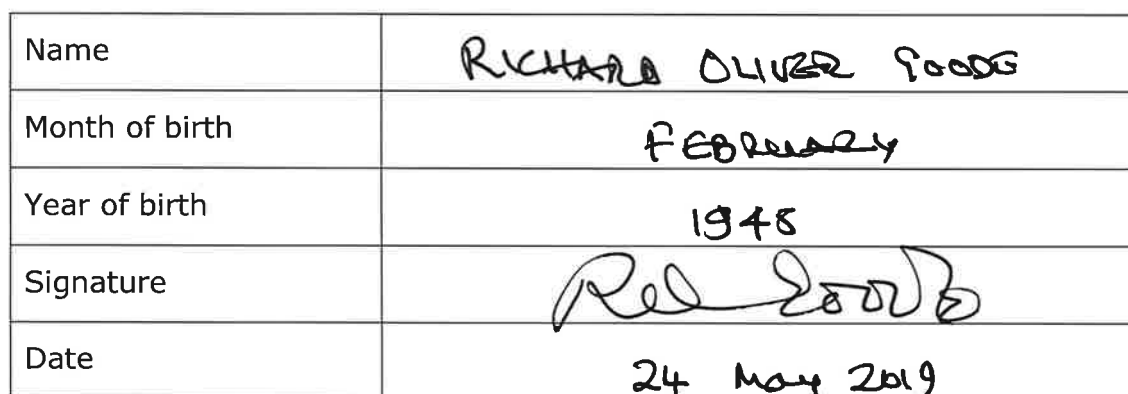 Name RICHARD OLIVER GOODE
Month of birth FEBRUARY
Year of birth 1945
Signature
Date 24 May 2019